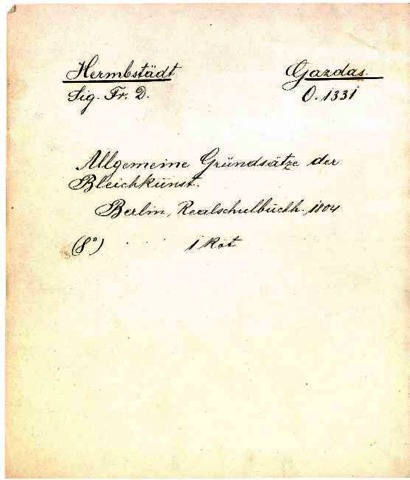 Hermbstädt Gazdas.
Sig. Fr. D. O. 1331
Allgemeine Gründsätze der
Bleichkunst.
Berlin, Realschulbuchh. 1804
(8°) . . . . . 1 Köt